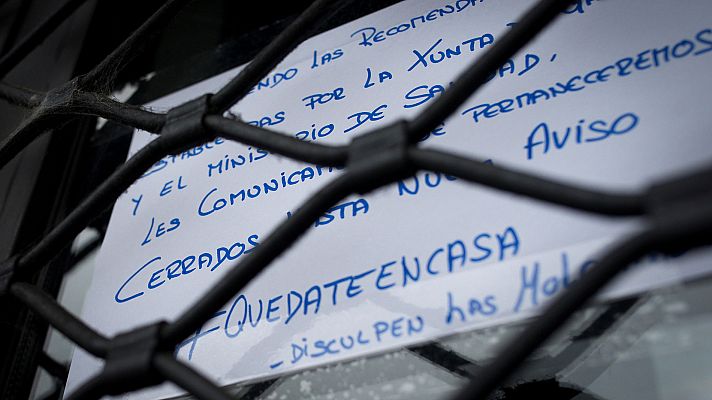 LAS RECOMENDA
POR LA XUNTA
Y EL MINISTERIO DE SANIDAD,
LES COMUNICAMOS PERMANECEREMOS
CERRADOS HASTA NUEVO AVISO
#QUEDATEENCASA
- DISCULPEN LAS MOLE